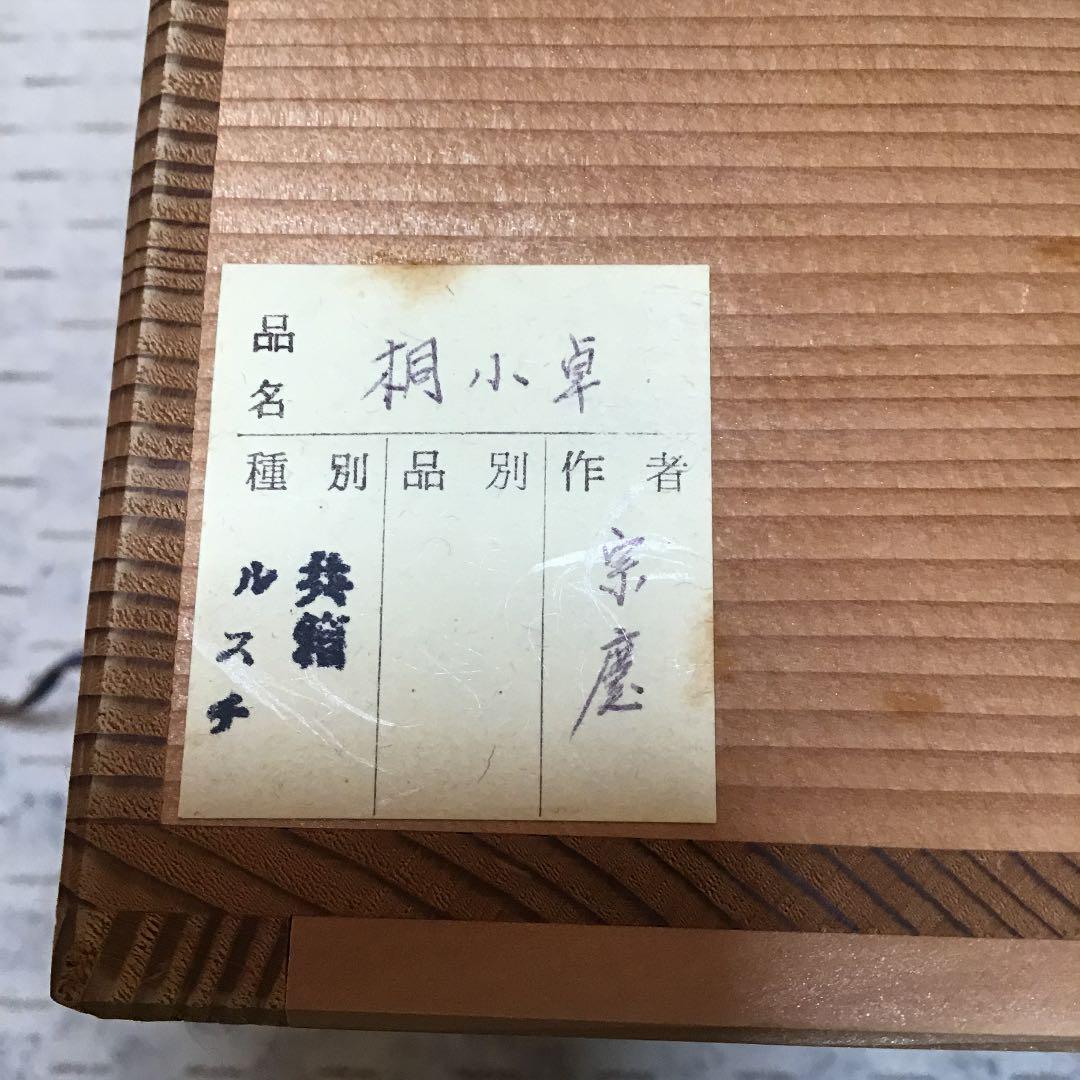 品名 桐小卓
種別 品別 作者
共箱
ルスチ
宗慶